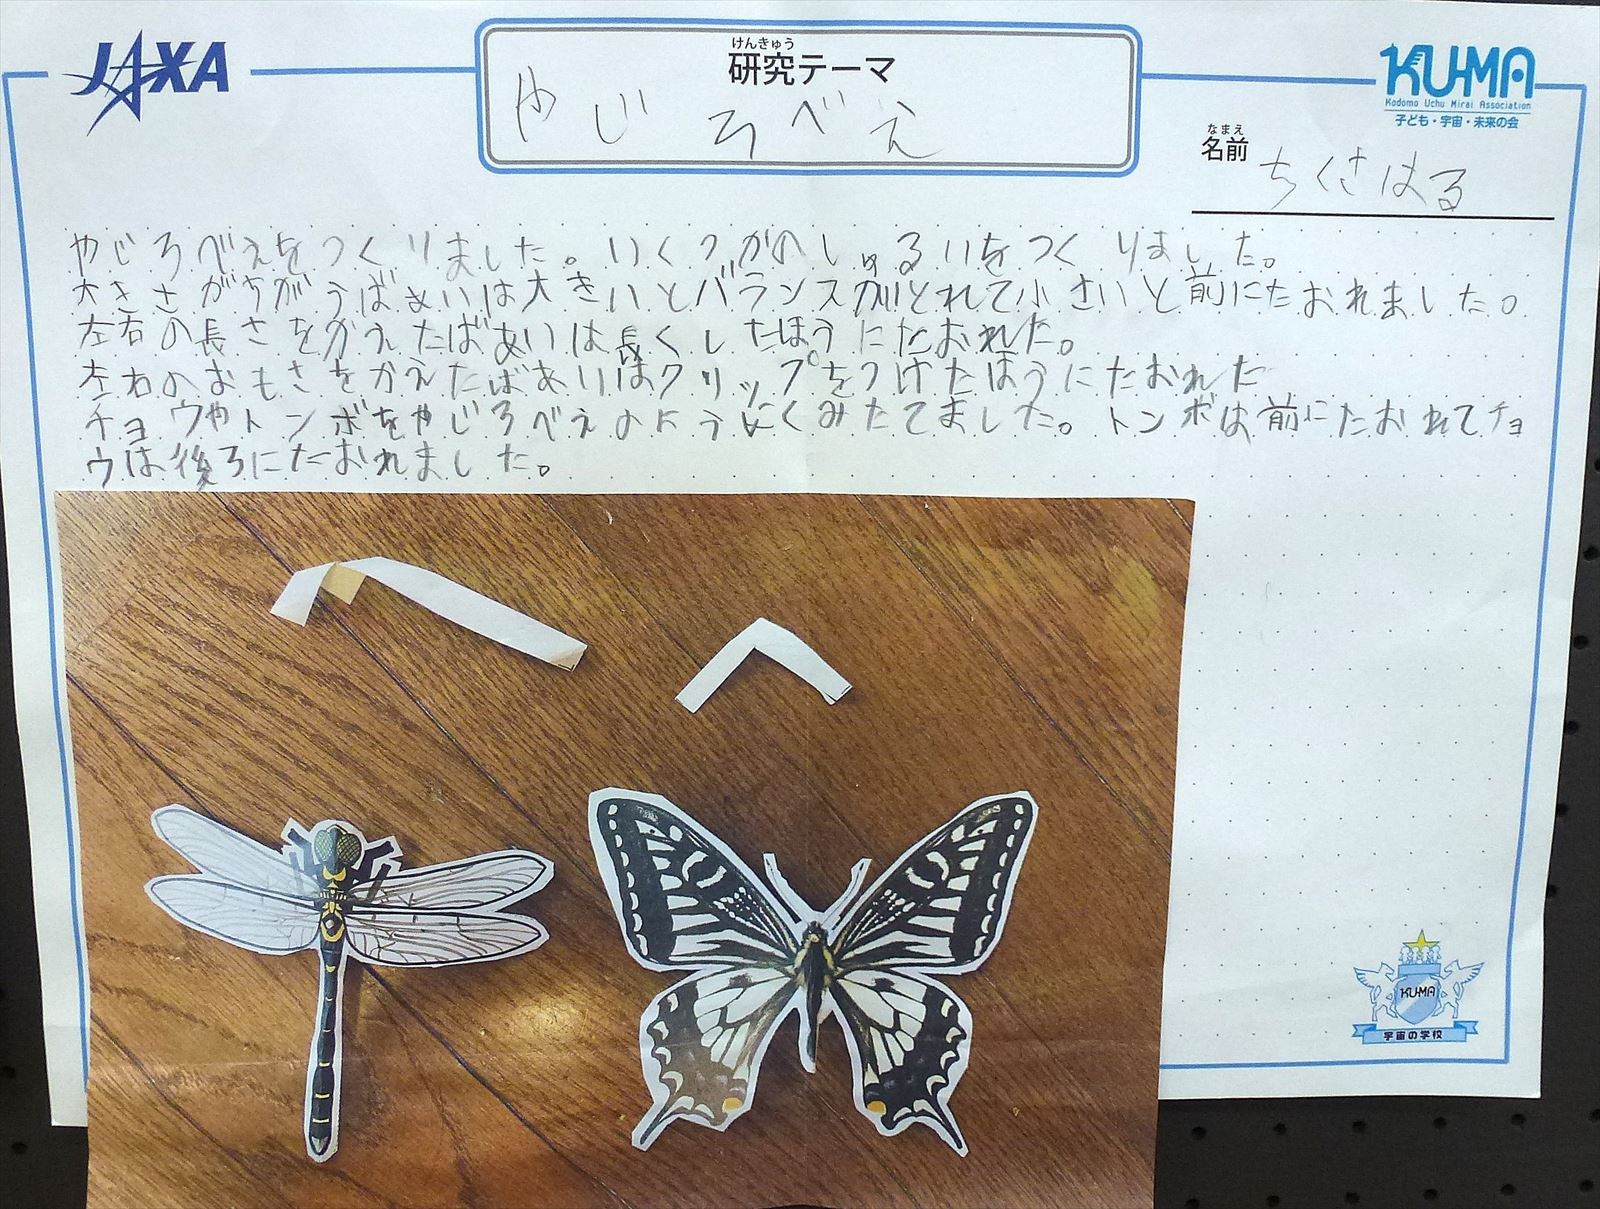 JAXA
けんきゅう
研究テーマ
やじろべえ
KU-MA
Kodomo Uchu Mirai Association
子ども・宇宙・未来の会
なまえ
名前 ちくさはる
やじろべえをつくりました。いくつかのしゅるいをつくりました。
大きさがちがうばあいは大きいとバランスがとれて小さいと前にたおれました。
左右の長さをかえたばあいは長くしたほうにたおれた。
左右のおもさをかえたばあいはクリップをつけたほうにたおれた
チョウやトンボをやじろべえのようにくみたてました。トンボは前にたおれてチョ
ウは後ろにたおれました。
KU-MA
宇宙の学校